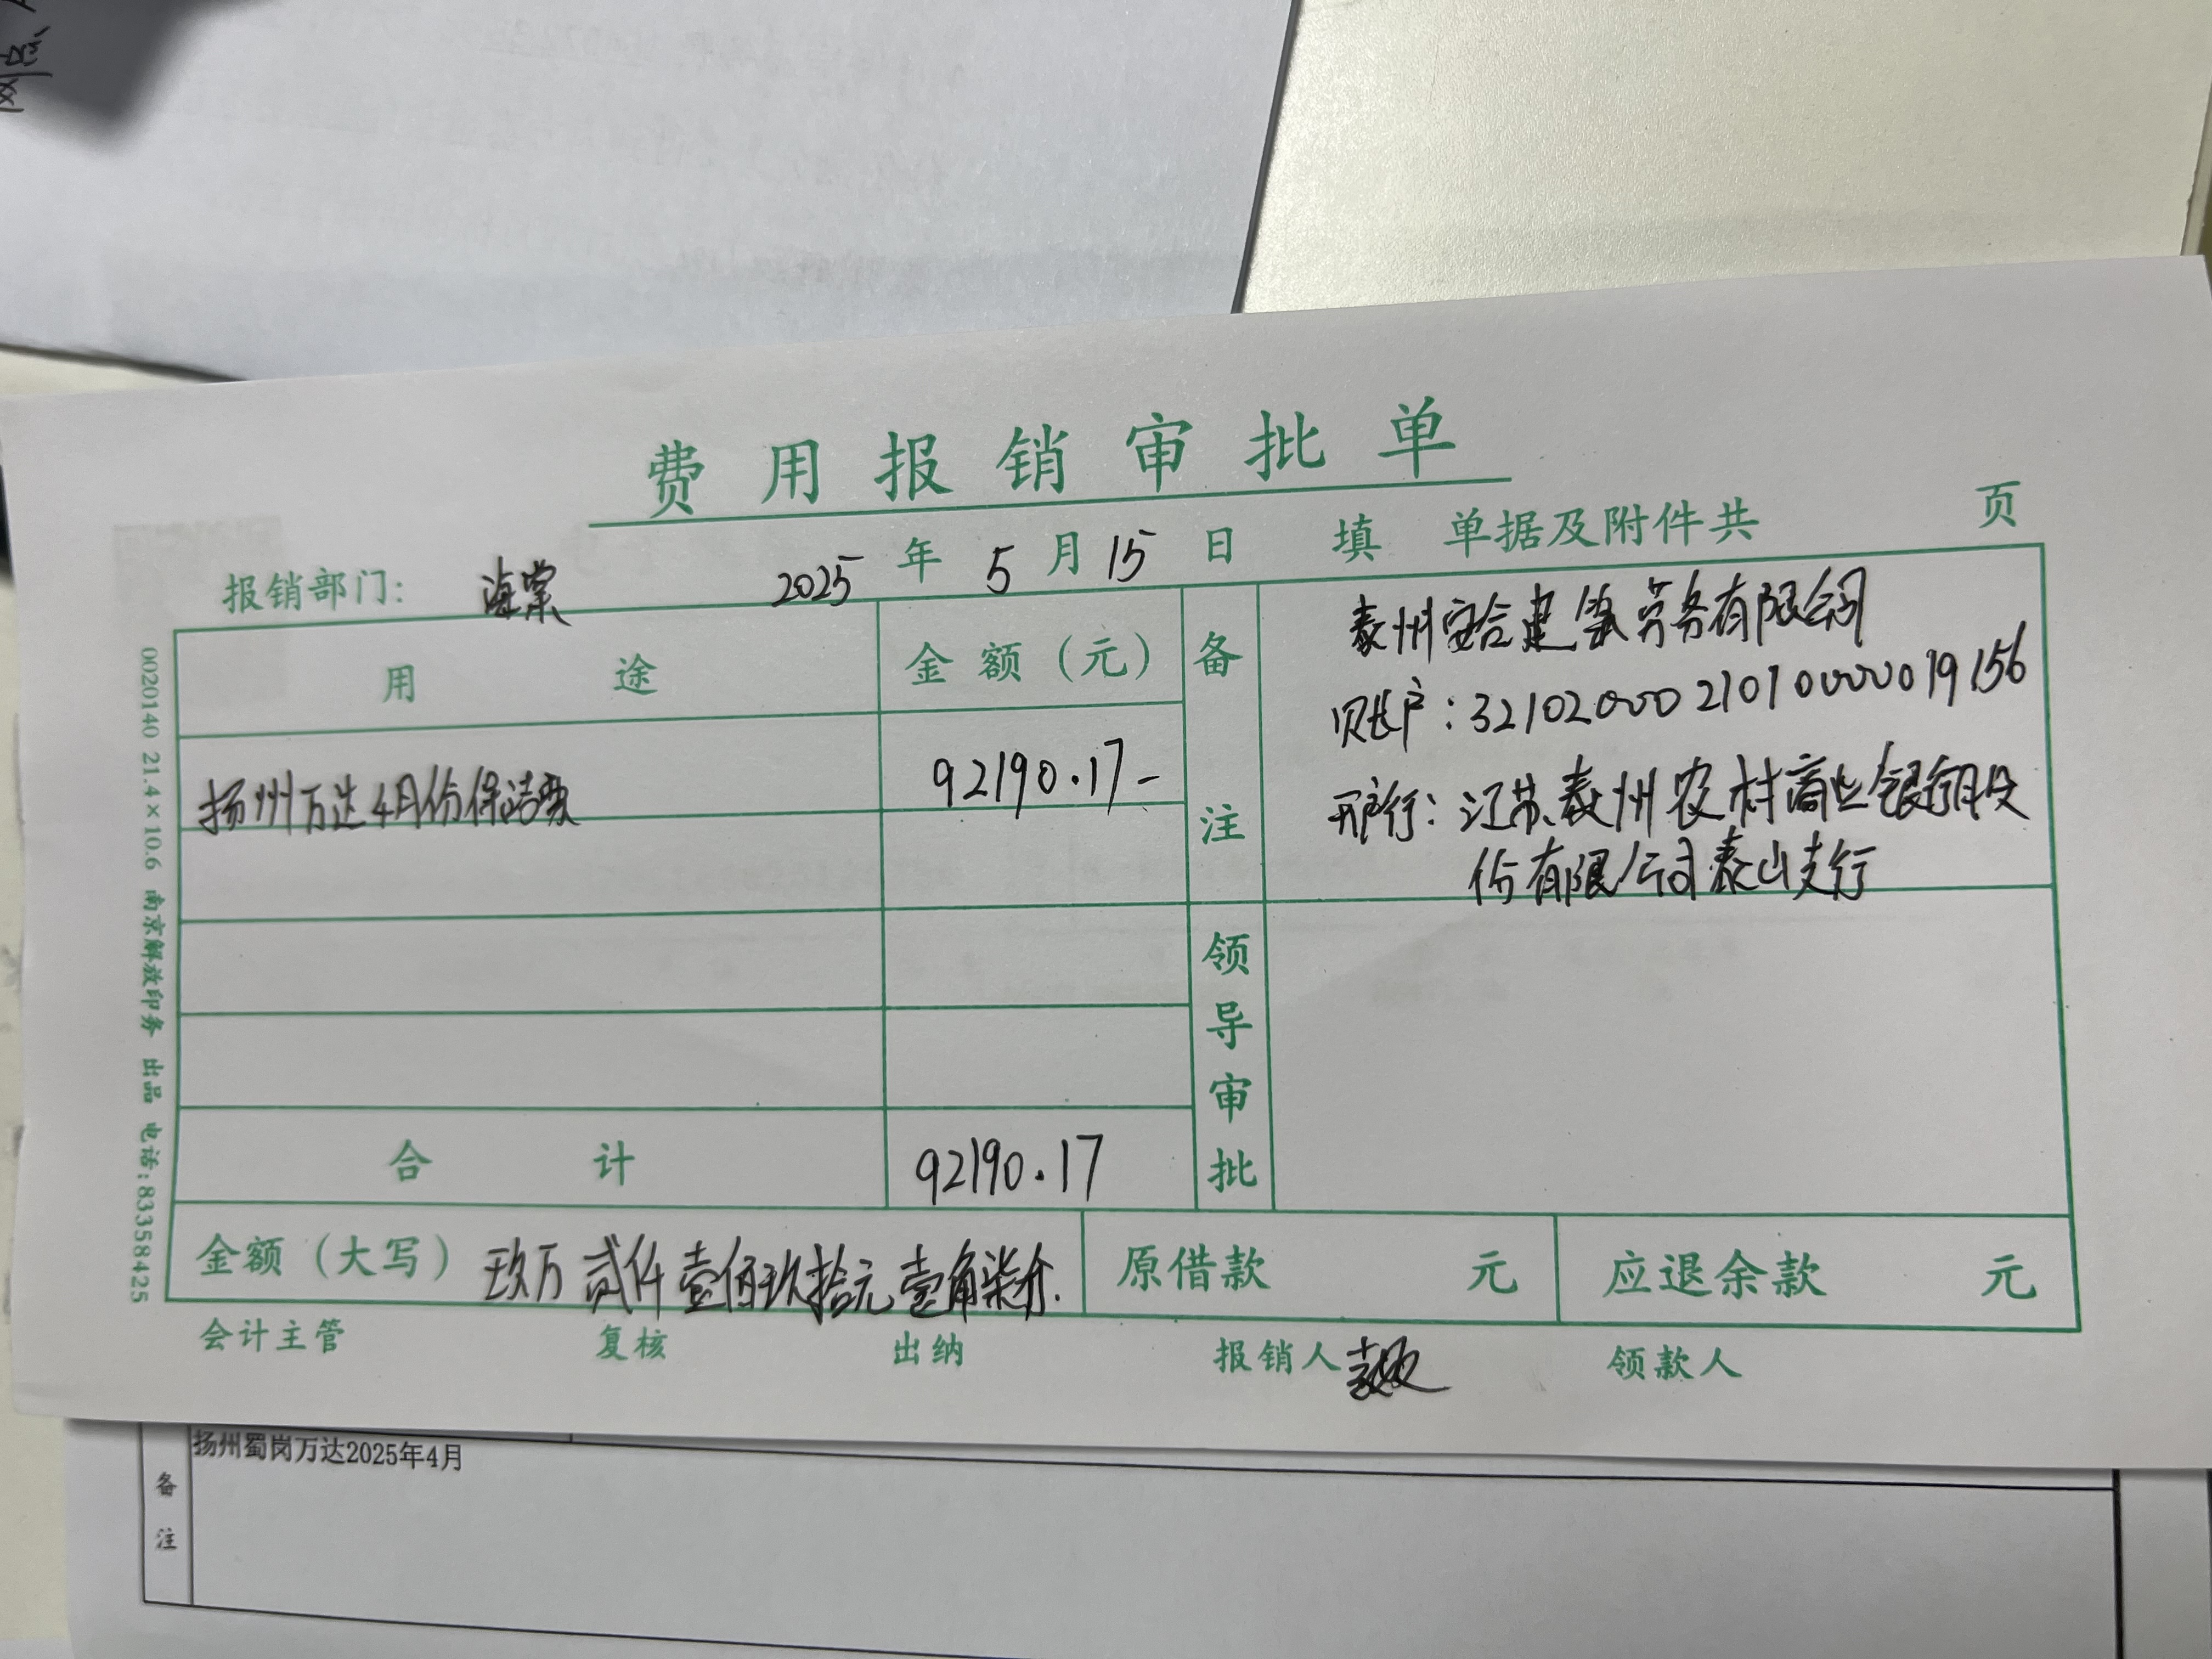 网点、
费用报销审批单
报销部门: 海棠 2025 年 5 月 15 日 填 单据及附件共 页
用途 金额(元) 备注
泰州安合建筑劳务有限公司
账户:3210200021010000019156
开户行:江苏泰州农村商业银行股
份有限公司泰山支行
扬州万达4月份保洁费 92190.17-
领导审批
合计 92190.17
金额(大写) 玖万贰仟壹佰玖拾元壹角柒分. 原借款 元 应退余款 元
会计主管 复核 出纳 报销人 领款人
0020140 21.4×10.6 南京解放印务 出品 电话:83358425
备注
扬州蜀岗万达2025年4月